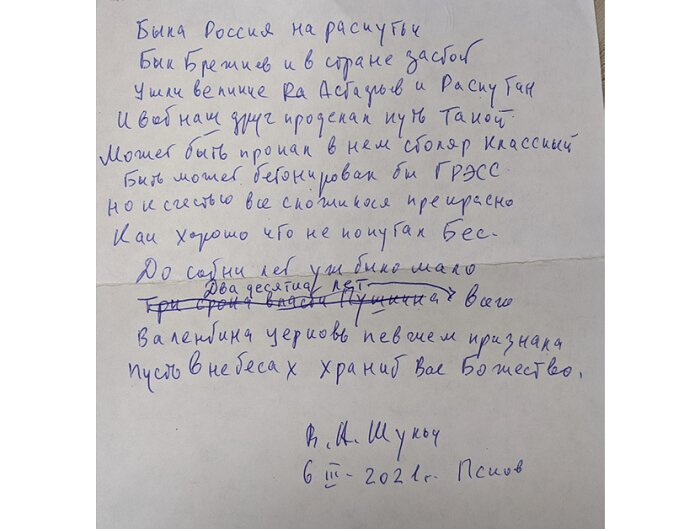 Была Россия на распутьи
Был Брежнев и в стране застой
Ушли великие Астафьев и Распутин
И вот наш друг проделал путь такой
Может быть пропал в нем столяр классный
Быть может бетонировал бы ГРЭСС
Но к счастью все сложилося прекрасно
Как хорошо что не попутал Бес.
До сотни лет уж было мало
Два десятка лет
Три срока власти Пушкина всего
Валентина церковь певчем признала
Пусть в небесах хранит Вас Божество.
В. А. Шульц
6 III - 2021г. Псков